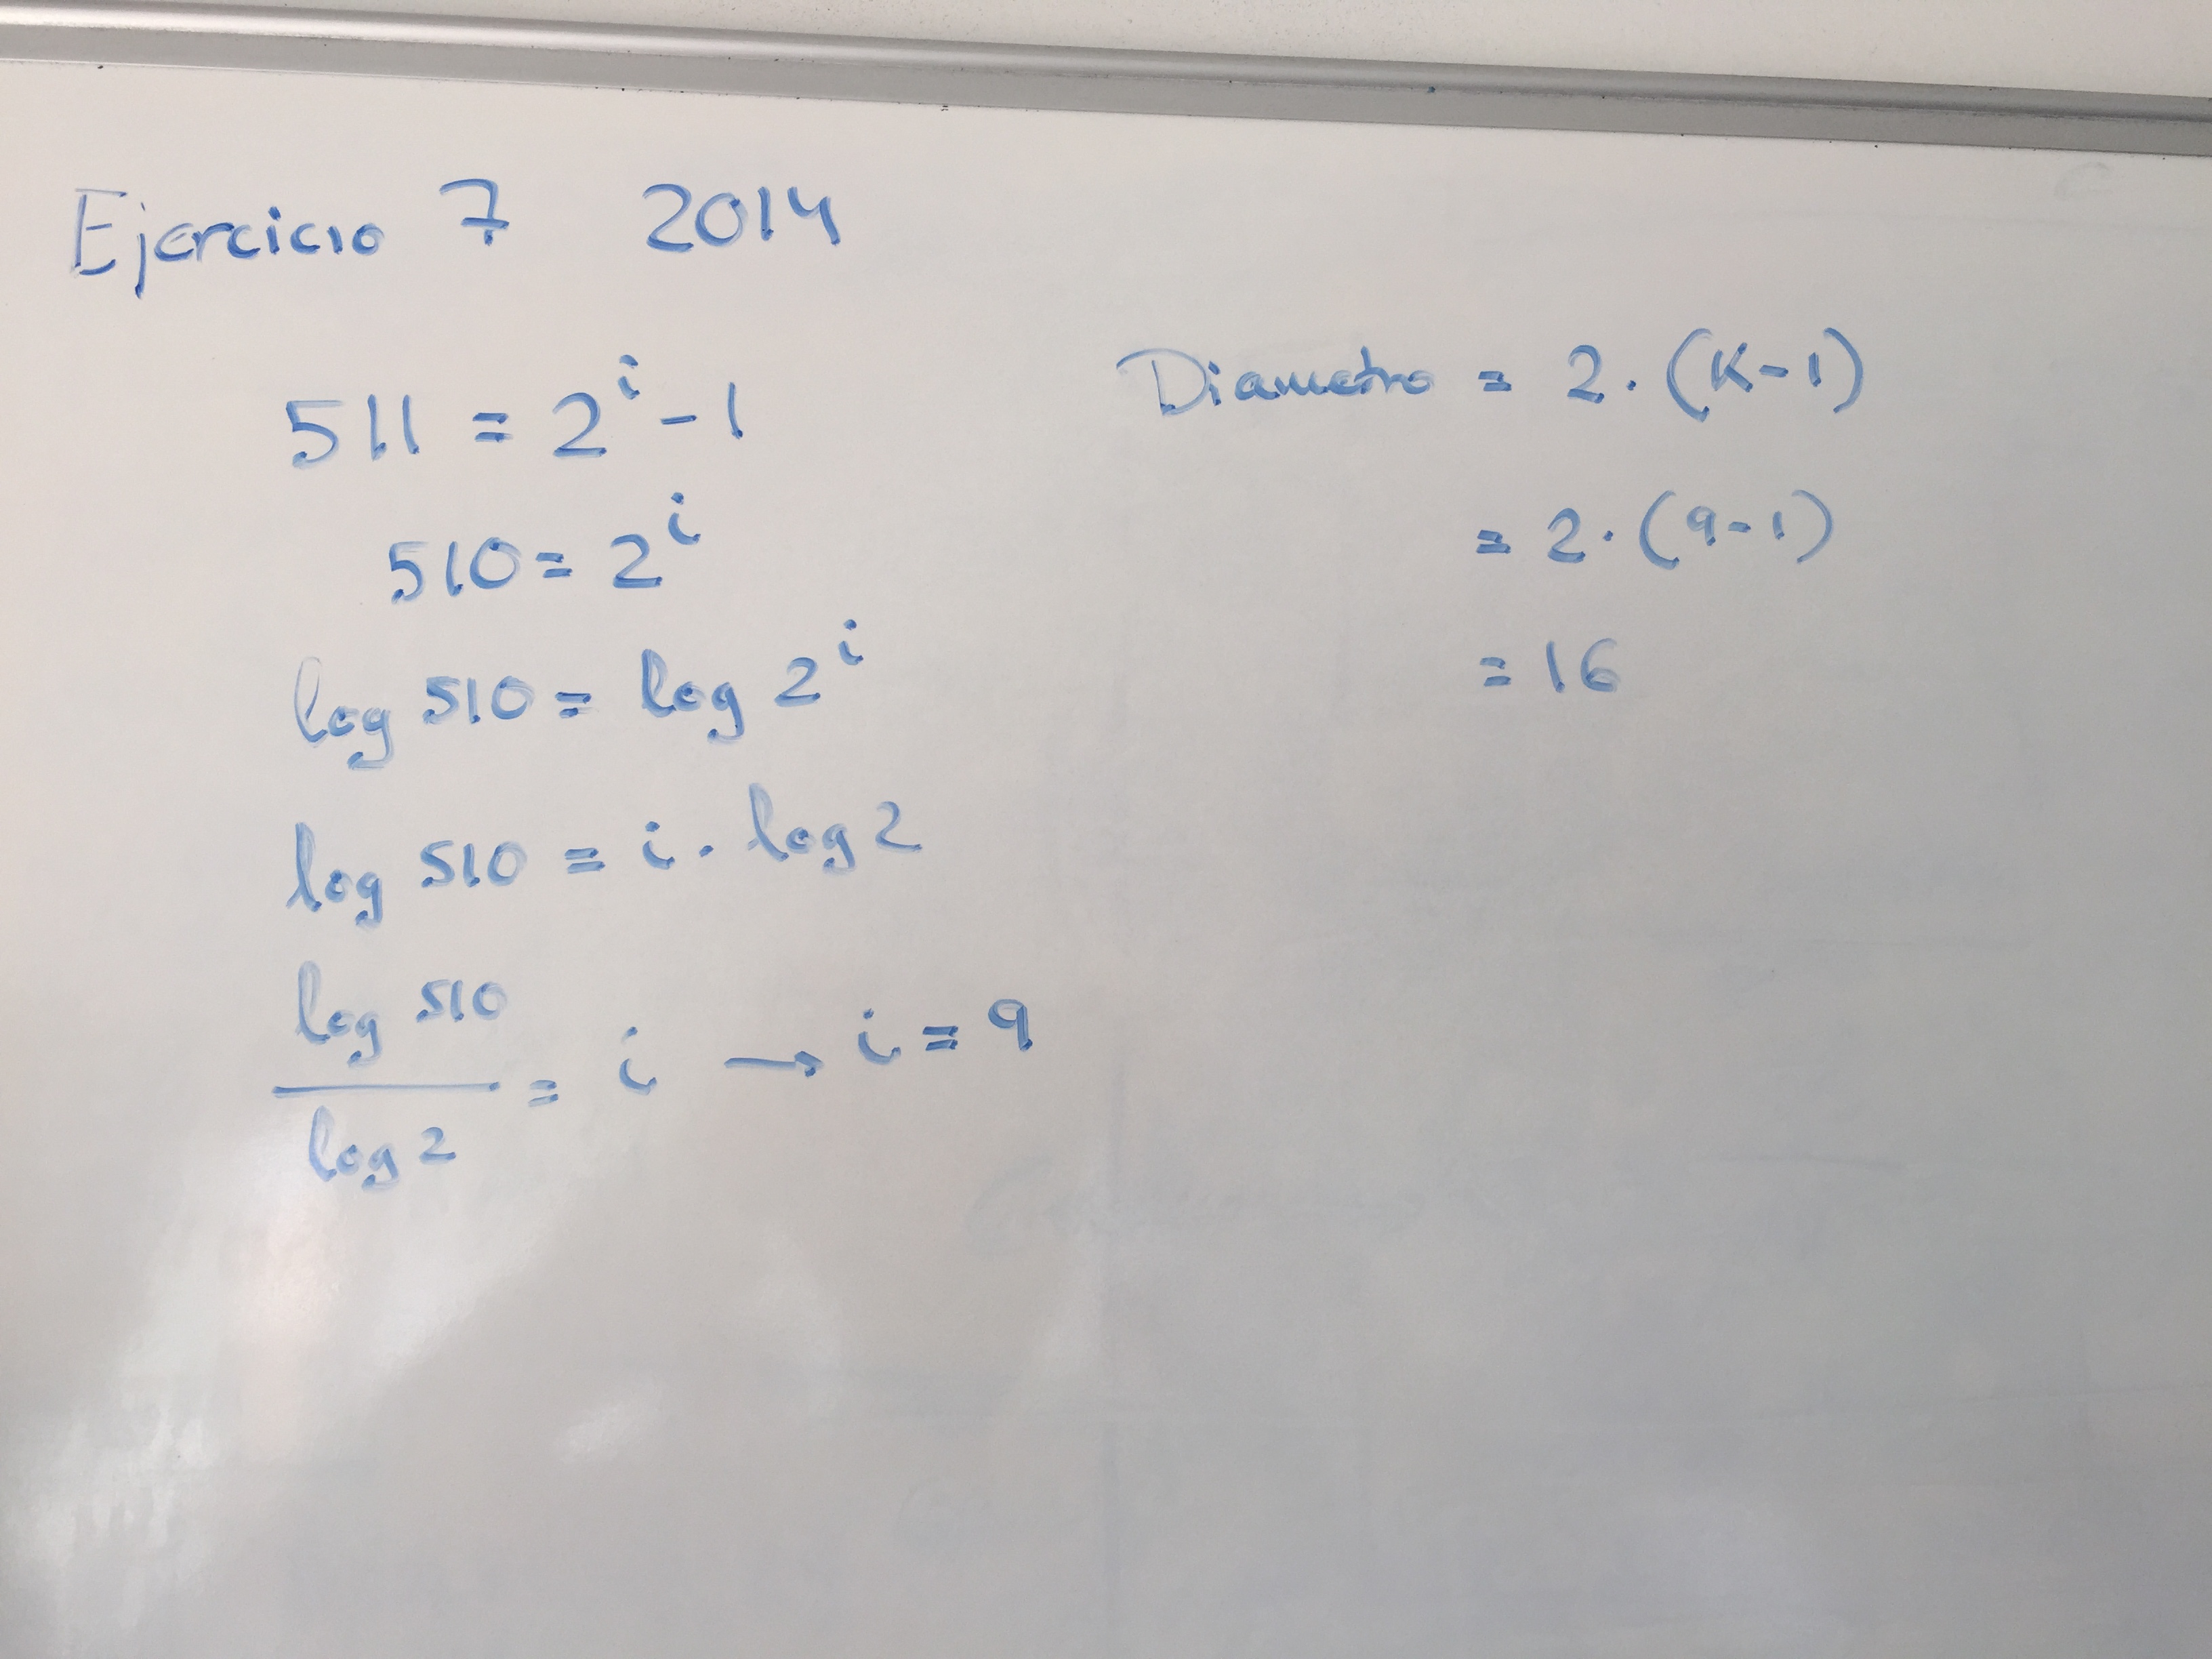 Ejercicio 7 2014
511 = 2^i - 1
510 = 2^i
log 510 = log 2^i
log 510 = i · log 2
log 510 / log 2 = i → i = 9
Diametro = 2 · (K-1)
= 2 · (9-1)
= 16